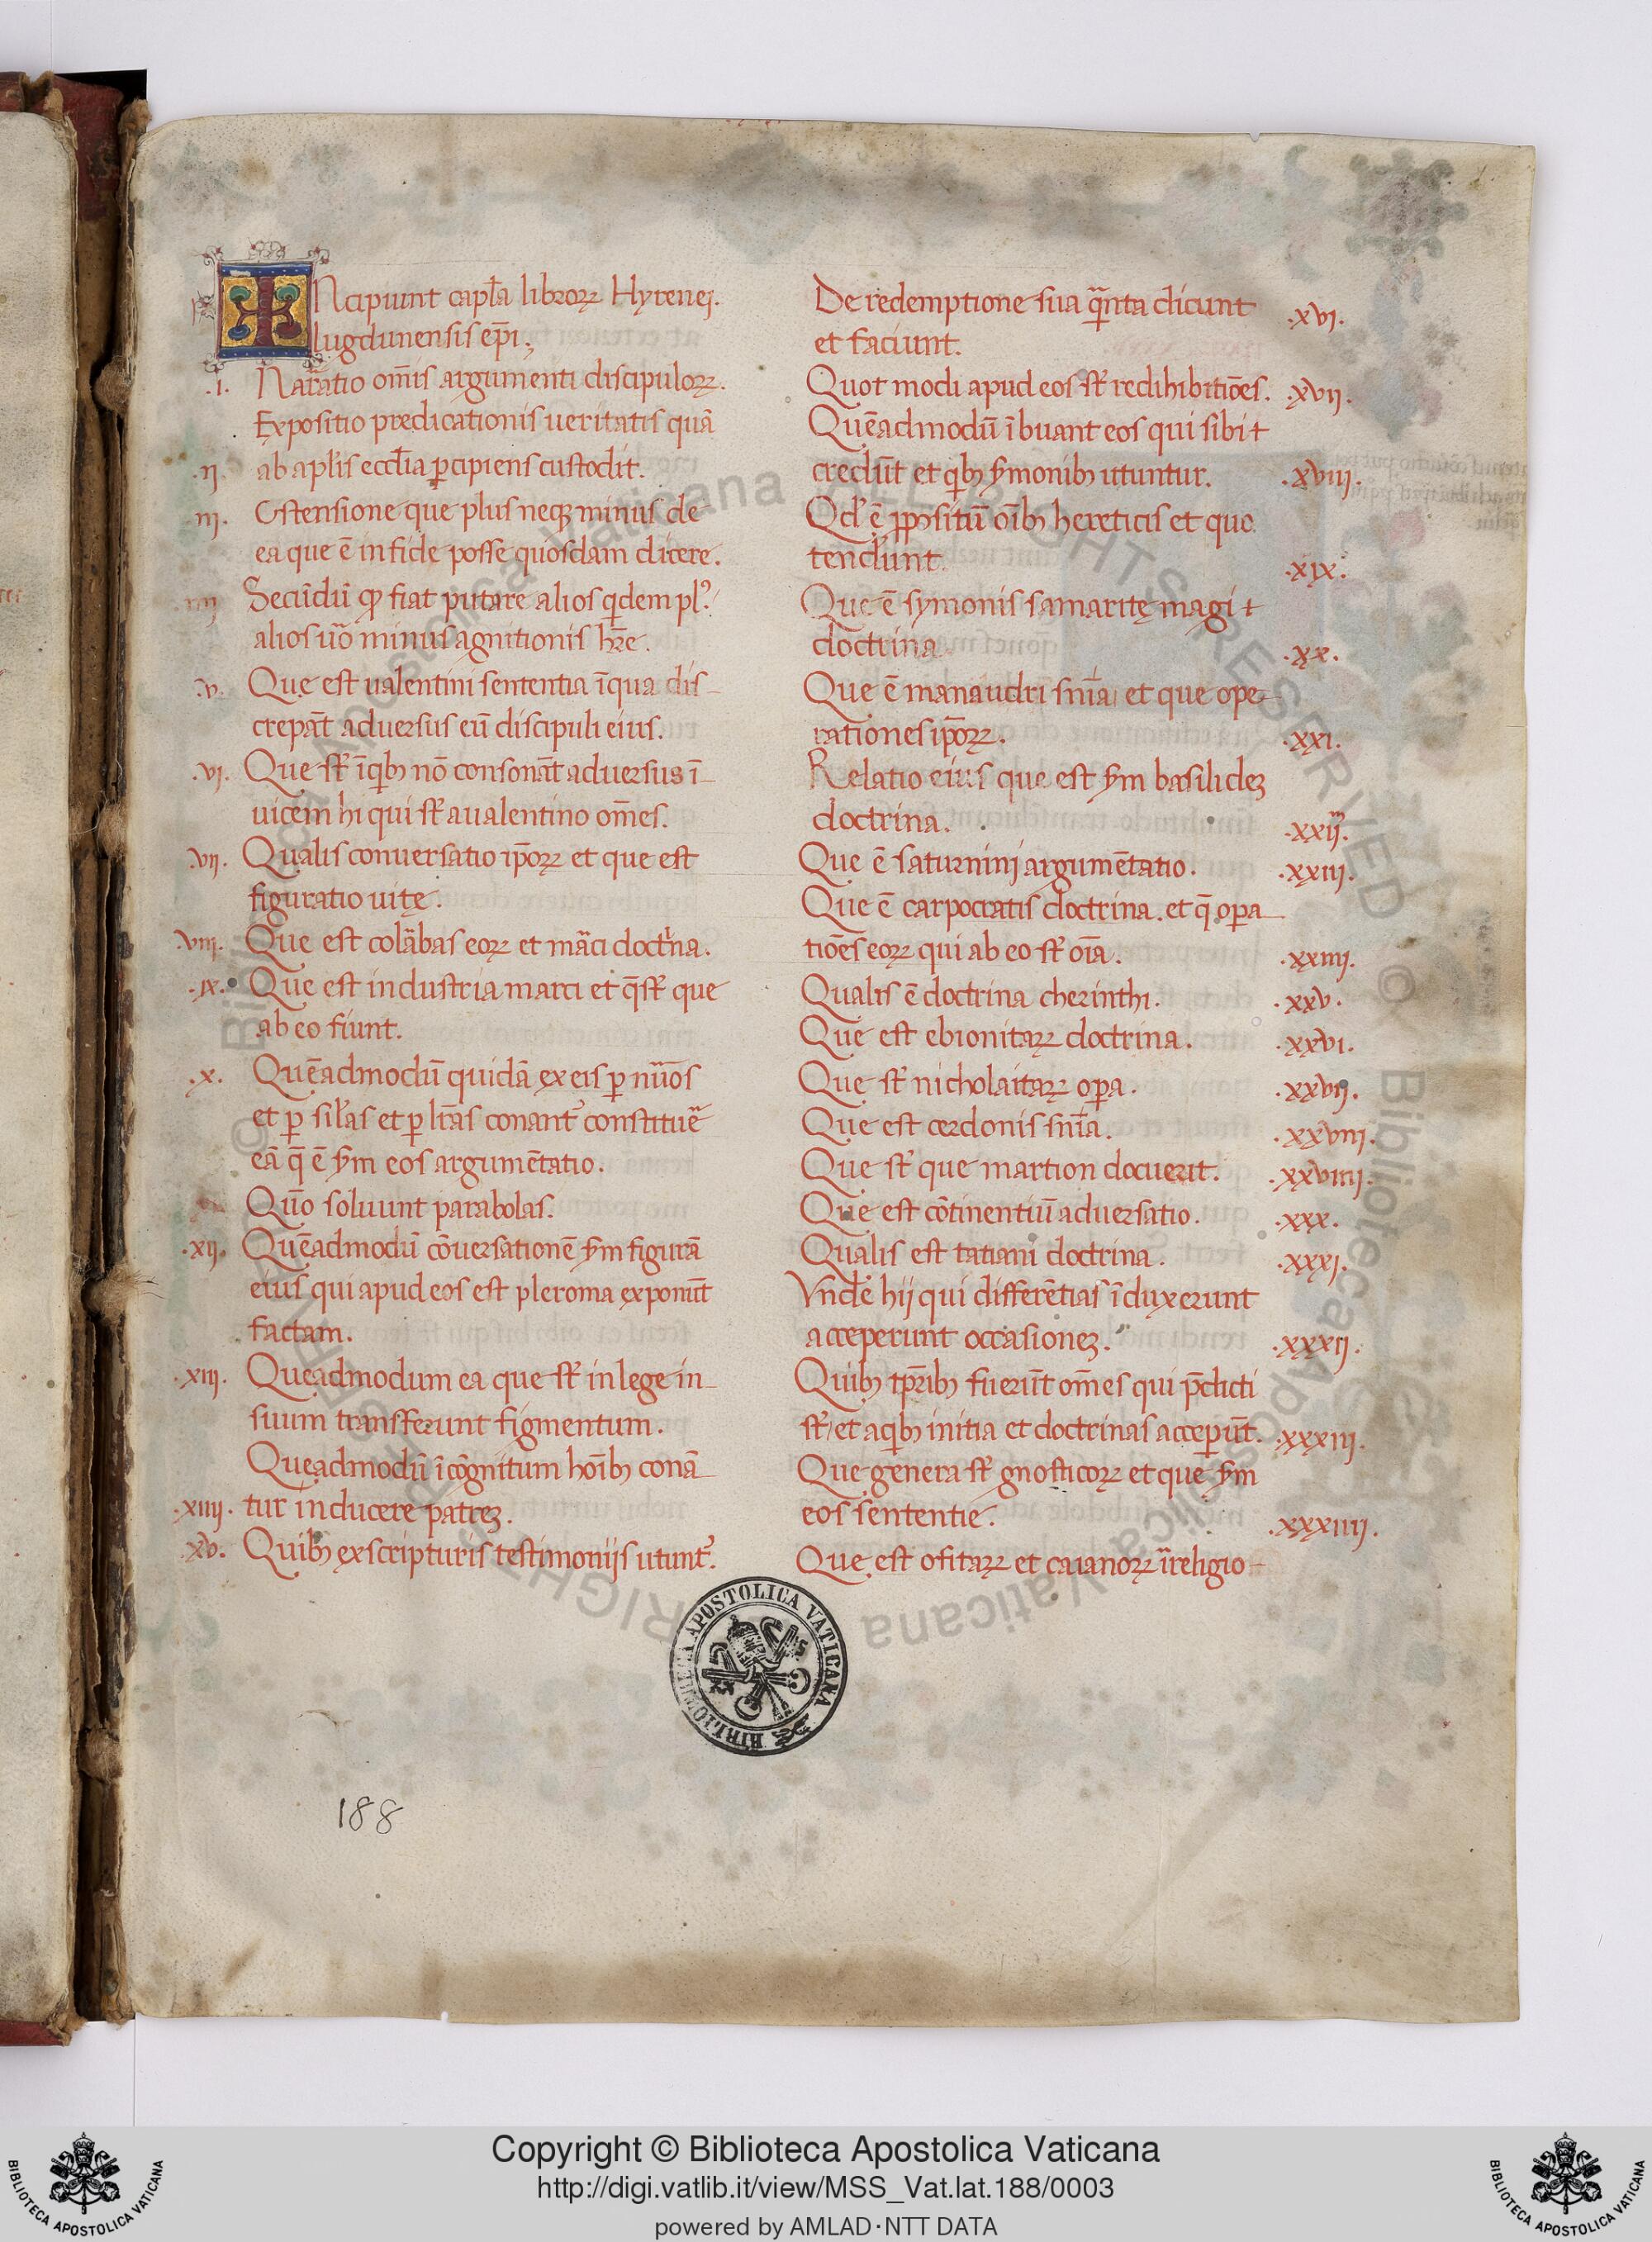 INcipiunt capl̄a libroꝝ Hyrenej.
lugdunensis ep̄i;
.i. Nar̄atio om̄is argumenti discipuloꝝ.
Expositio predicationis ueritatis quā
.ij. ab apl̄is eccl̄ia ꝑcipiens custodit.
.iij. Ostensione que plus neqꝫ minus de
ea que ē in fide posse quosdam dicere.
.iiij. Secūdū qꝫ fiat putare alios qdem pl᷒.
alios u̅o minus agnitionis hr̄e.
.v. Que est ualentini sententia ī qua dis-
crepāt aduersus eū discipuli eius.
.vi. Que st̄ ī qibꝫ nō consonāt aduersus ī-
uicem hi qui st̄ a ualentino om̄es.
.vij. Qualis conuersatio ip̄oꝝ et que est
figuratio uitę.
.viij. Que est colābas eoꝝ et māci doctⁱna.
.ix. Que est industria marci et q̄ st̄ que
ab eo fiunt.
.x. Quēadmodū quidā ex eis ꝑ nūos
et ꝑ sil̄as et ꝑ lr̄as conant᷑ constituē
eā q̄ ē s̄m eos argumētatio.
Quō soluunt parabolas.
.xij. Quēadmodū cōuersationē s̄m figurā
eius qui apud eos est pleroma exponūt
factam.
.xiij. Queadmodum ea que st̄ in lege in-
suum transferunt figmentum.
Queadmodū īcōgnitum hoībꝫ conā-
.xiiij. tur inducere patreꝫ.
.xv. Quibꝫ ex scripturis testimonijs utunt᷑.
De redemptione sua q̄nta dicunt
et faciunt. .xvi.
Quot modi apud eos st̄ redihibitiōes. .xvij.
Quēadmodū ībuant eos qui sibi +
credūt et qibꝫ s̄monibꝫ utuntur. .xviij.
Qd̄ ē ꝓpositū oībꝫ hereticis et quo
tendunt. .xix.
Que ē symonis samaritę magi +
doctrina. .xx.
Que ē manaudri sn̄ia et que ope-
rationes ip̄oꝝ. .xxi.
Relatio eius que est s̄m basilideꝫ
doctrina. .xxij.
Que ē saturnini argumētatio. .xxiij.
Que ē carpocratis doctrina. et q̄ oꝑa-
tiōes eoꝝ qui ab eo st̄ oīa. .xxiiij.
Qualis ē doctrina cherinthi. .xxv.
Que est ebionitaꝝ doctrina. .xxvi.
Que st̄ nicholaitaꝝ oꝑa. .xxvij.
Que est cerdonis sn̄ia. .xxviij.
Que st̄ que martion docuerit. .xxviiij.
Que est cōtinentiū aduersatio. .xxx.
Qualis est tatiani doctrina. .xxxj.
Vnde hij qui differētias īduxerunt
acceperunt occasioneꝫ. .xxxij.
Quibꝫ tpr̄ibꝫ fuerūt om̄es qui p̄dicti
st̄ et a qibꝫ initia et doctrinas acceꝑūt. .xxxiij.
Que genera st̄ gnosticoꝝ et que s̄m
eos sententie. .xxxiiij.
Que est ofitaꝝ et caianoꝝ īreligio-
BIBLIOTHECA APOSTOLICA VATICANA
188
© Biblioteca Apostolica Vaticana ALL RIGHTS RESERVED
© Biblioteca Apostolica Vaticana ALL RIGHTS RESERVED
Copyright © Biblioteca Apostolica Vaticana
http://digi.vatlib.it/view/MSS_Vat.lat.188/0003
powered by AMLAD·NTT DATA
BIBLIOTECA APOSTOLICA VATICANA
BIBLIOTECA APOSTOLICA VATICANA